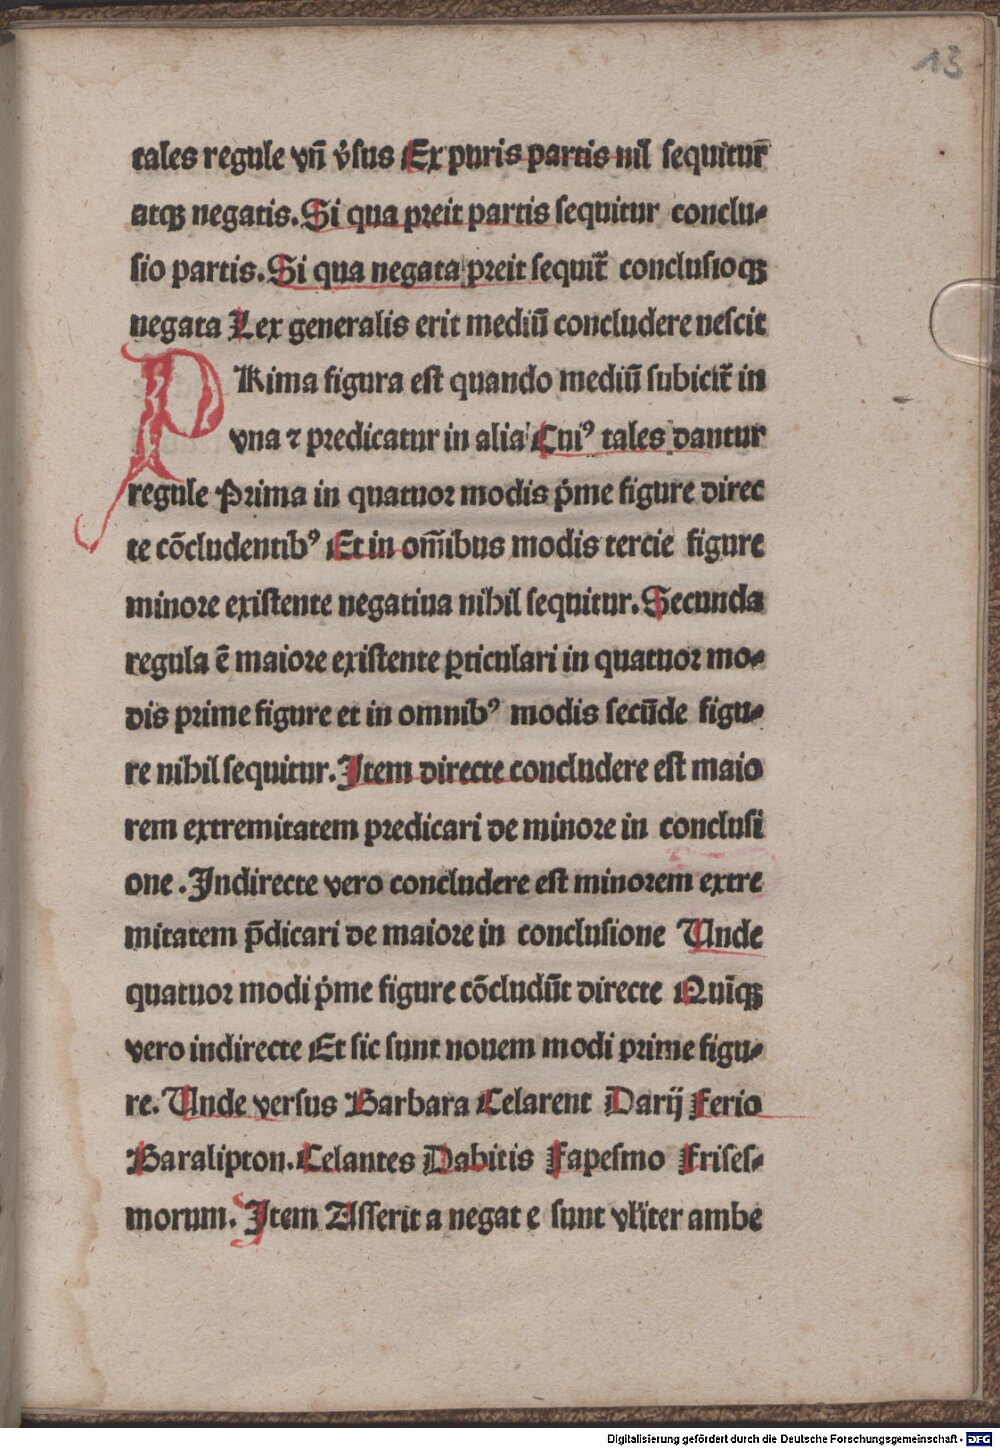 13
tales regule vn̄ v̓sus Ex puris partis nil sequitur̄
atqꝫ negatis. Si qua preit partis sequitur conclu⸗
sio partis. Si qua negata preit sequit᷑ conclusioqꝫ
negata Lex generalis erit mediū concludere nescit
PRima figura est quando mediū subicit᷑ in
vna ⁊ predicatur in alia Cuiꝰ tales dantur
regule Prima in quatuor modis p̓me figure direc
te cōcludentibꝰ Et in om̄ibus modis tercie figure
minore existente negatiua nihil sequitur. Secunda
regula ē maiore existente ꝑticulari in quatuor mo⸗
dis prime figure et in omnibꝰ modis secūde figu⸗
re nihil sequitur. Item directe concludere est maio
rem extremitatem predicari de minore in conclusi
one . Indirecte vero concludere est minorem extre
mitatem p̄dicari de maiore in conclusione Unde
quatuor modi p̓me figure cōcludūt directe Quīqꝫ
vero indirecte Et sic sunt nouem modi prime figu⸗
re. Unde versus Barbara Celarent Darij Ferio
Baralipton. Celantes Dabitis Fapesmo Frises⸗
morum. Item Asserit a negat e sunt vl̓iter ambe
Digitalisierung gefördert durch die Deutsche Forschungsgemeinschaft - DFG